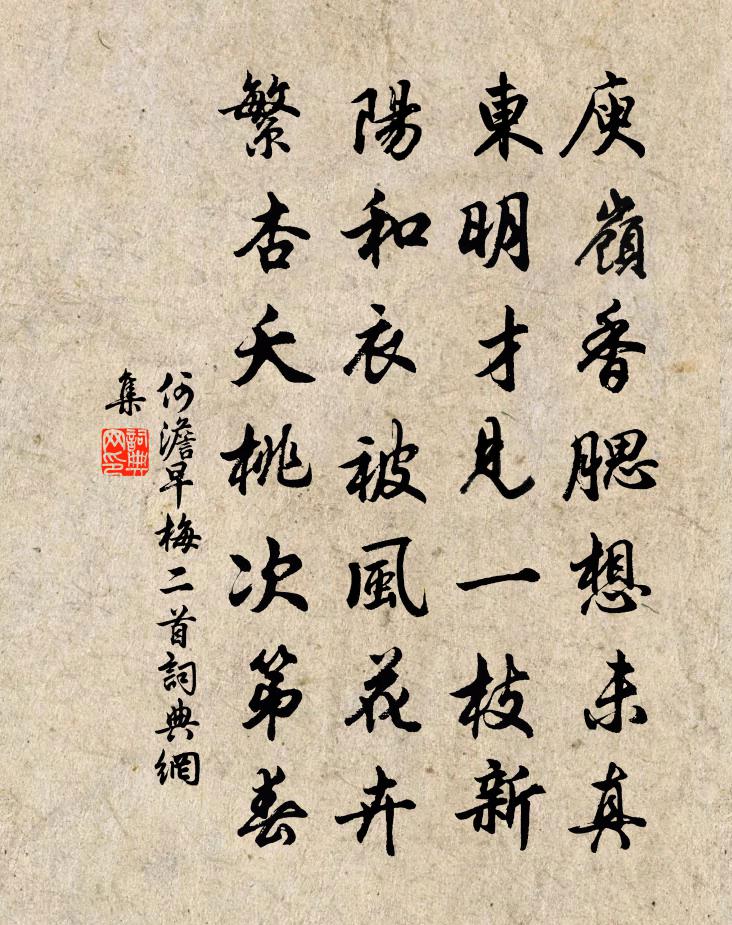 庾嶺香腮想未真
東明才見一枝新
陽和衣被風花卉
繁杏夭桃次第春
何澹早梅二首詞典網
集
詞典
网印